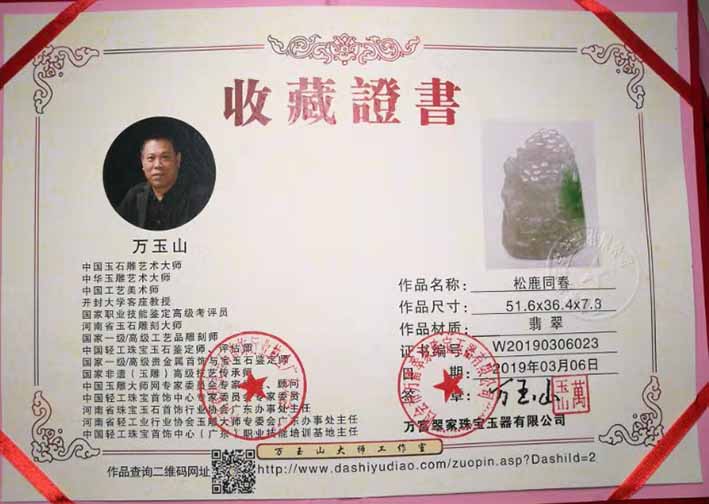 收藏證書
万玉山
中国玉石雕艺术大师
中华玉雕艺术大师
中国工艺美术师
开封大学客座教授
国家职业技能鉴定高级考评员
河南省玉石雕刻大师
国家一级/高级工艺品雕刻师
中国轻工珠宝玉石鉴定师、评估师
国家一级/高级贵金属首饰与宝玉石鉴定师
国家非遗(玉雕)高级技艺传承师
中国玉雕大师网专家委员会专家、顾问
中国轻工珠宝首饰中心专家委员会专家委员
河南省珠宝玉石首饰行业协会广东办事处主任
河南省轻工业行业协会玉雕大师专委会广东办事处主任
中国轻工珠宝首饰中心(广东)职业技能培训基地主任
作品名称: 松鹿同春
作品尺寸: 51.6x36.4x7.3
作品材质: 翡翠
证书编号: W20190306023
日期: 2019年03月06日
签章: 万玉山
萬玉山
万富翠家珠宝玉器有限公司
万玉山大师工作室
作品查询二维码网址
http://www.dashiyudiao.com/zuopin.asp?DashiId=2